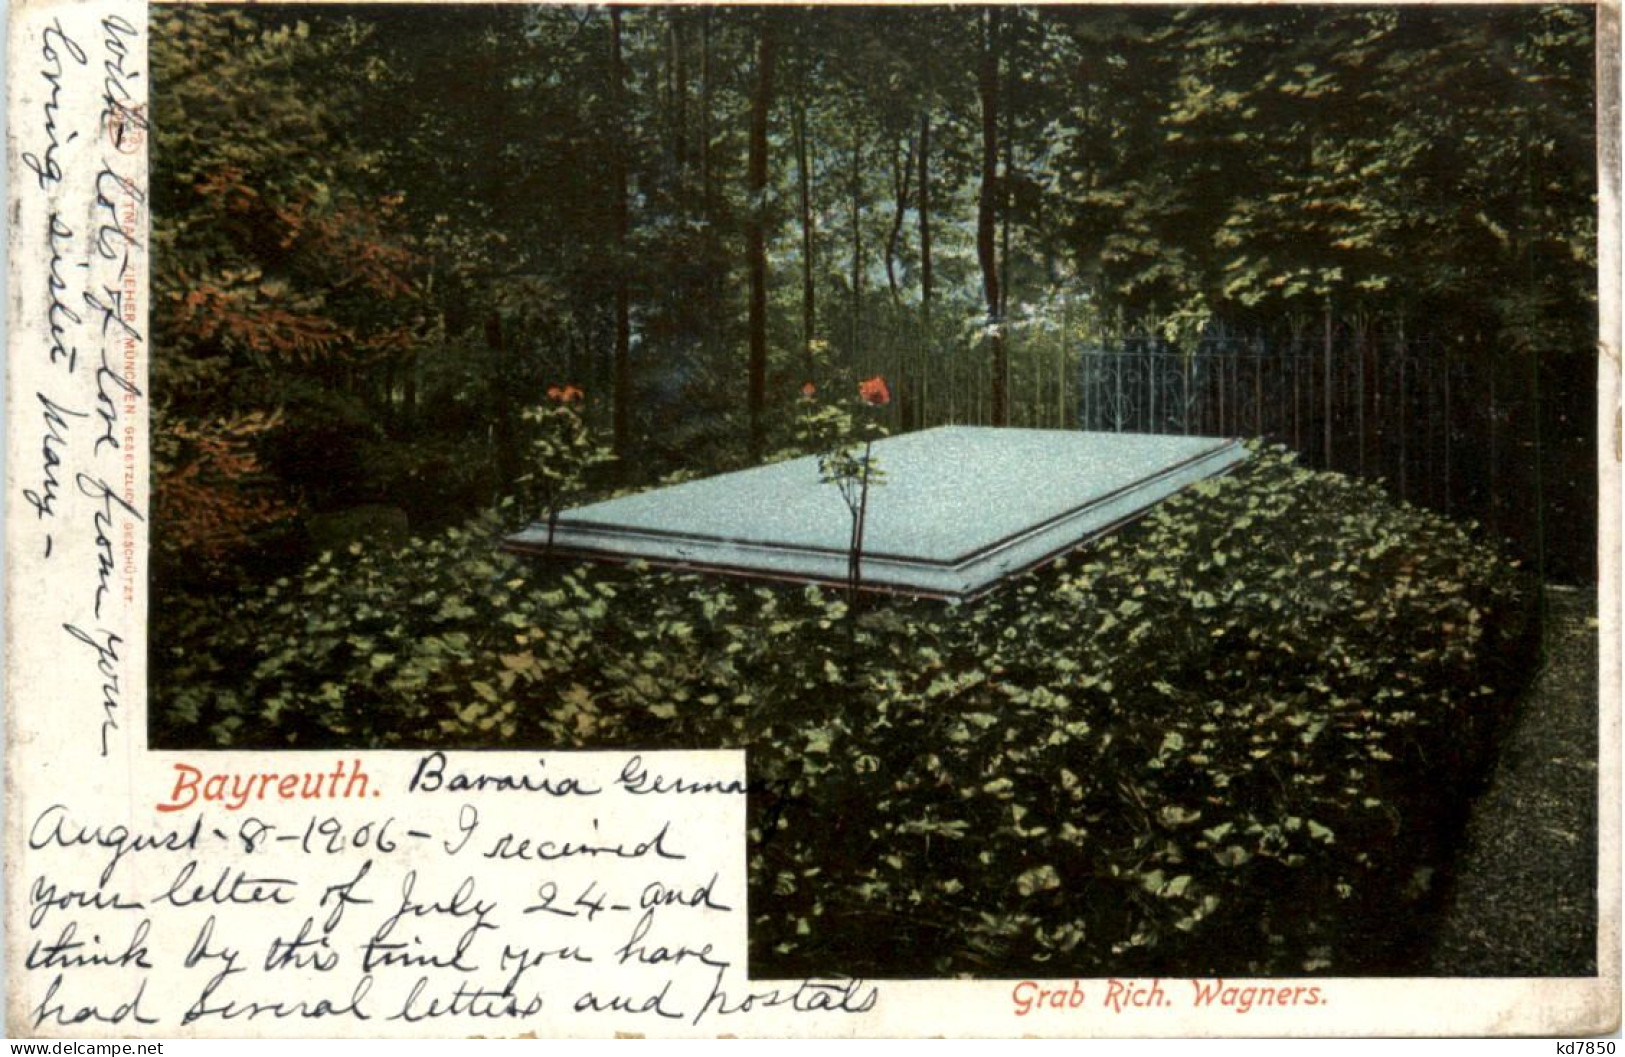 Bayreuth. Bavaria Germany
August - 8 - 1906 - I received
your letter of July 24 - and
think by this time you have
had several letters and postals
with lots of love from your
loving sister Mary -
Grab Rich. Wagners.
ZIEHER, MÜNCHEN. GESETZLICH GESCHÜTZT.
kd7850